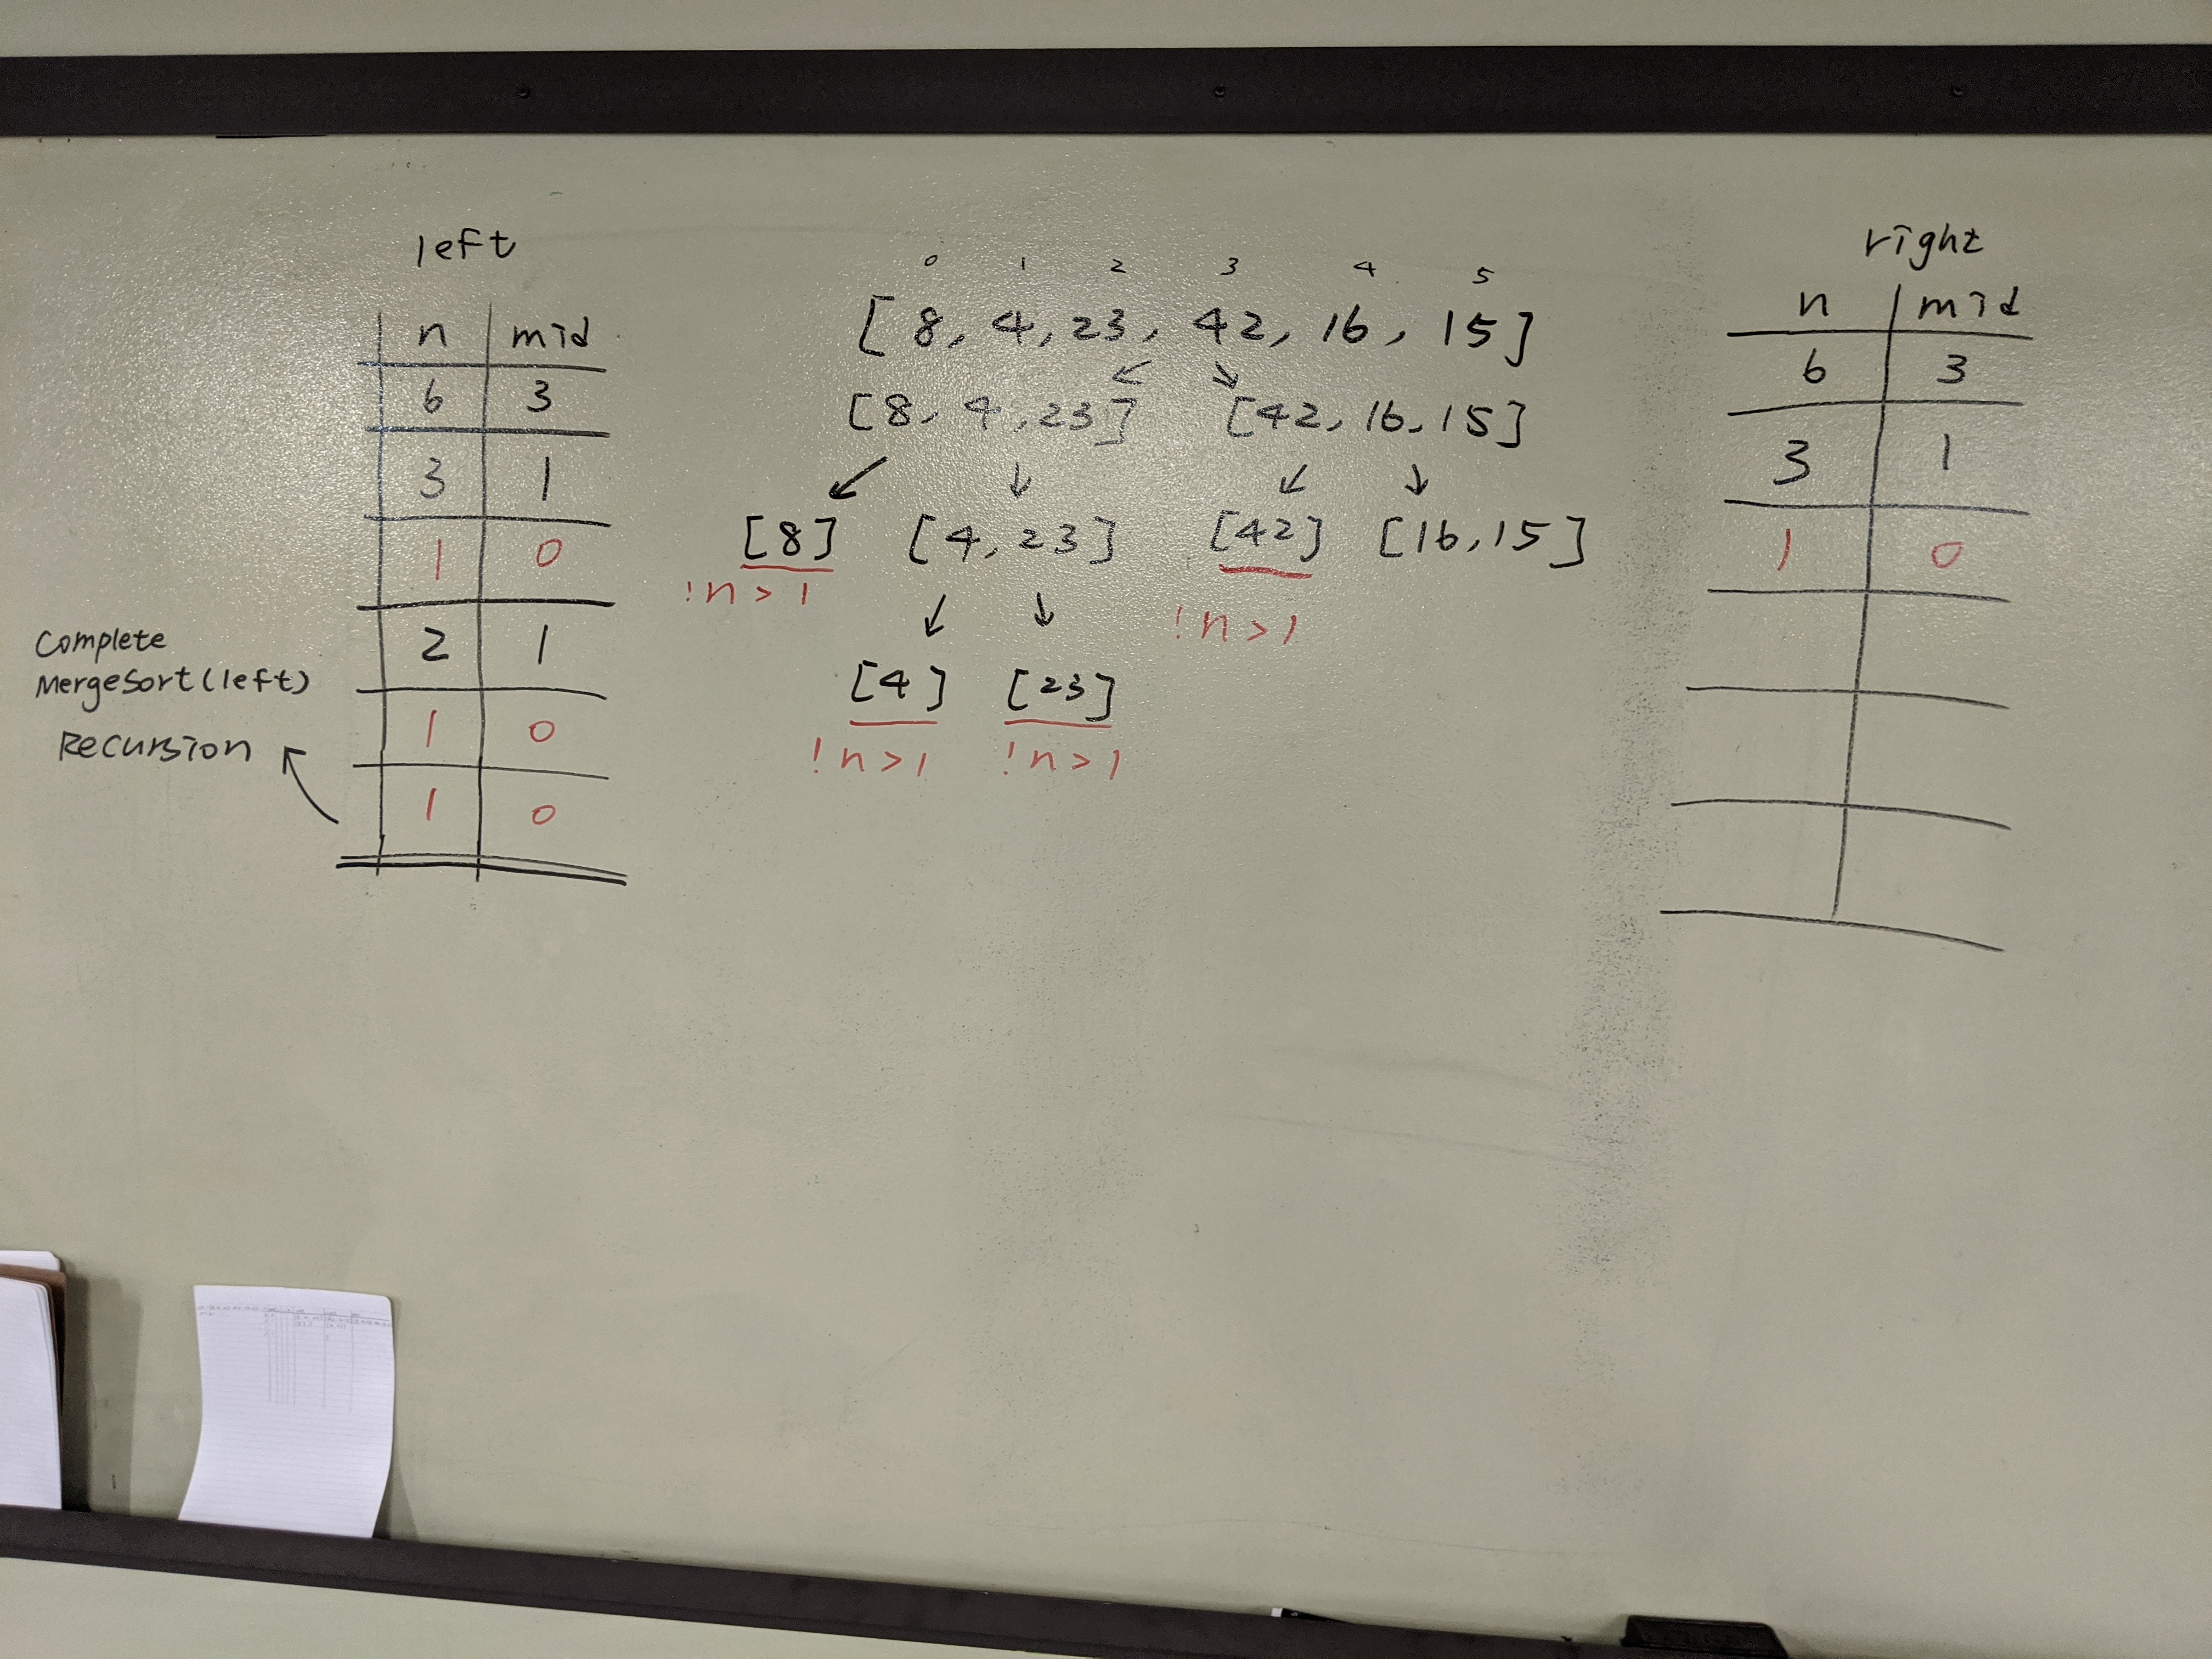 left
n mid
6 3
3 1
1 0
2 1
1 0
1 0
Complete
MergeSort(left)
Recursion
0 1 2 3 4 5
[8, 4, 23, 42, 16, 15]
↙ ↘
[8, 4, 23] [42, 16, 15]
↙ ↓ ↙ ↓
[8] [4, 23] [42] [16, 15]
!n > 1 !n > 1
↙ ↓
[4] [23]
!n > 1 !n > 1
right
n mid
6 3
3 1
1 0